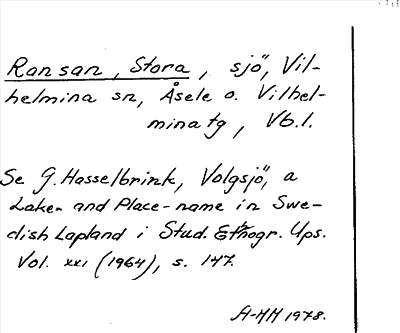 Ransan, Stora, sjö, Vil-
helmina sn, Åsele o. Vilhel-
mina tg, Vb.l.
Se G. Hasselbrink, Volgsjö, a
Lake- and Place-name in Swe-
dish Lapland i Stud. Ethnogr. Ups.
Vol. XXI (1964), s. 147.
A-MH 1978.